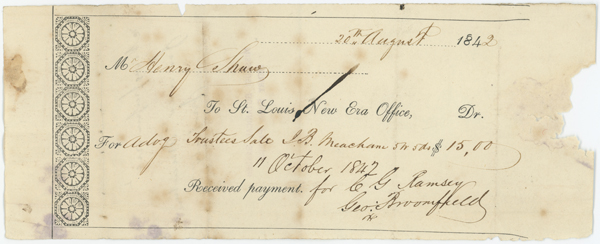 20th August 1842
Mr Henry Shaw
To St. Louis New Era Office, Dr.
For adog Trustees Sale J. B. Meachum $ 15,00
11 October, 1842
Received payment. for E G Ramsey
Geo: Broomfield